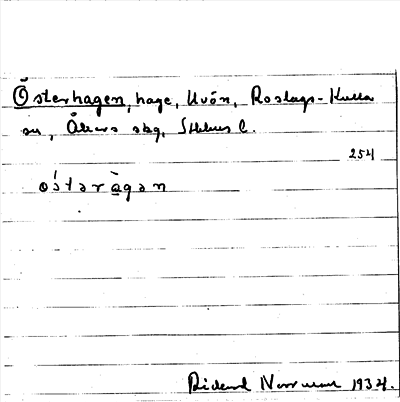 Österhagen, hage, Uvön, Roslags-Kulla
sn, Åkers sbg, Sthlms l.
254
östəràgən
Rickard Norrman 1934.